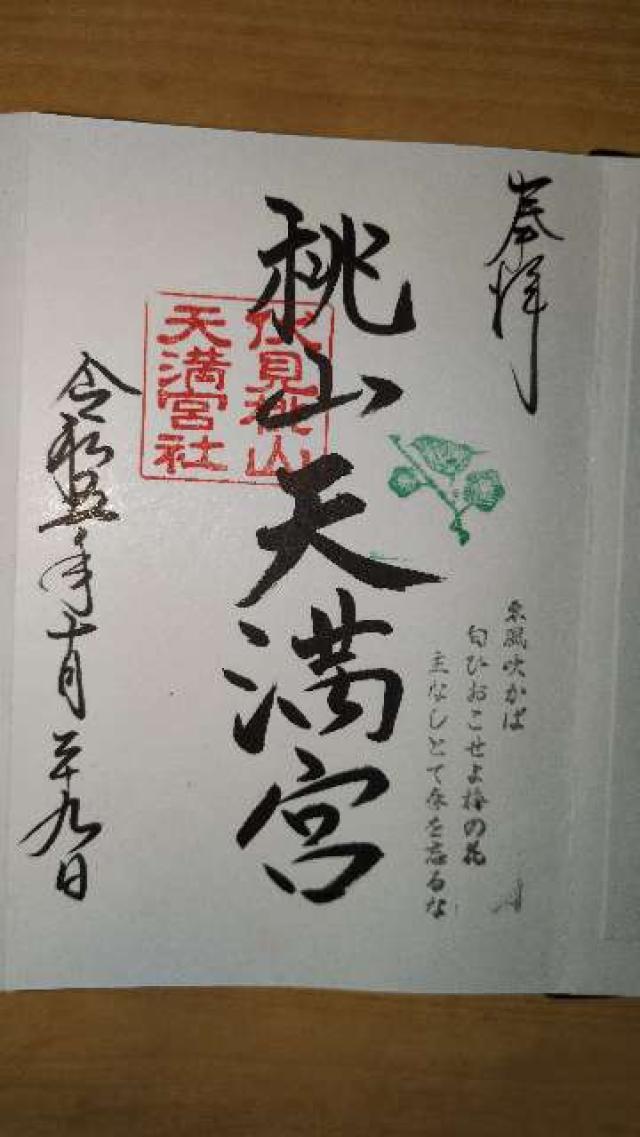 奉拝
東風吹かば
匂ひおこせよ梅の花
主なしとて春を忘るな
桃山天満宮
伏見桃山
天満宮社
令和五年十月二十九日